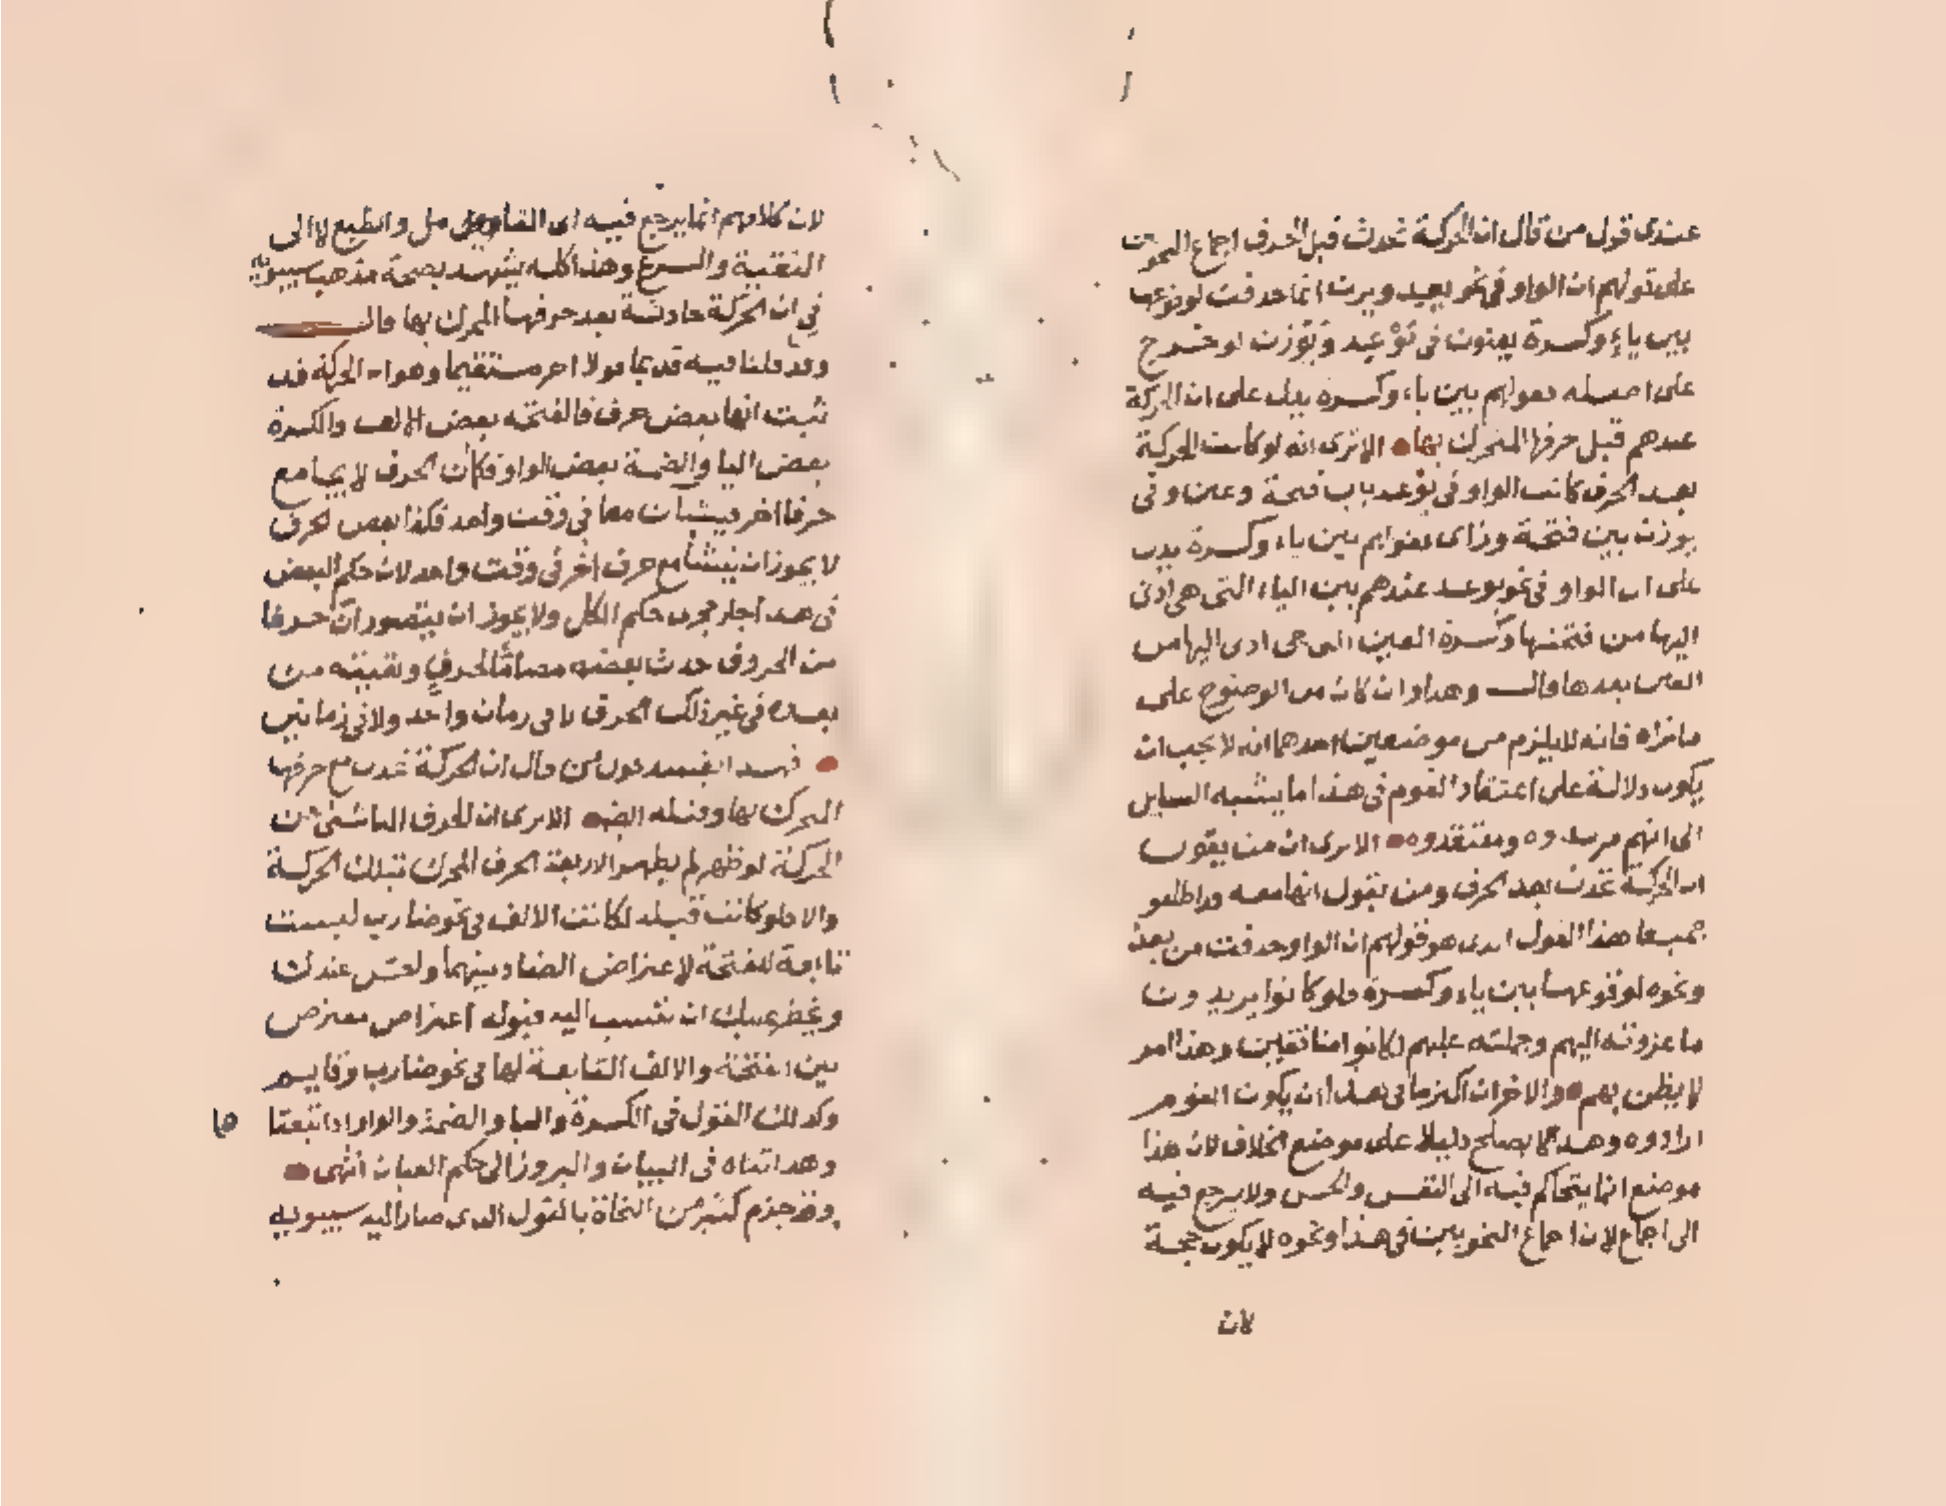 عندى قول من قال ان الحركة تحدث قبل الحرف اجماع النحويين
على قولهم ان الواو فى نحو يعيد ويزن انما حذفت لوقوعها
بين ياء وكسرة يعنون فى يَوْعِد ويَوْزن لو خرج
على اصله فقولهم بين ياء وكسرة يدل على ان الحركة
عندهم قبل حرفها المتحرك بها الا ترى انه لو كانت الحركة
بعد الحرف كانت الواو فى يوعد باب فتحة وعين وفى
يوزن بين فتحة وزاى فقولهم بين ياء وكسرة يدل
على ان الواو فى نحو يوعد عندهم بين الياء التى هى ادنى
اليها من فتحتها وكسرة العين التى هى ادنى اليها من
العين بعدها قال وهذا وان كان من الوضوح على
ما تراه فانه لا يلزم من موضعين احدهما انه لا يجب ان
يكون دلالة على اعتقاد القوم فى هذا ما يشبه السايل
الى انهم مريدوه ومعتقدوه الا ترى ان من يقول
ان الحركة تحدث بعد الحرف ومن يقول انها معه قد اطلقو
جميعا هذا القول الذى هو قولهم ان الواو حذفت من يعد
ونحوه لوقوعها بين ياء وكسرة فلو كانوا يريدون
ما عزوته اليهم وحملته عليهم لكانوا مناقضين وهذا امر
لا يظن بهم والاخران اكثر ما فى هذا ان يكون القوم
ارادوه وهذا لا يصلح دليلا على موضع الخلاف لان هذا
موضع انما يتحاكم فيه الى النفس والحس ولا يرجع فيه
الى اجماع لان اجماع النحويين فى هذا ونحوه لا يكون حجة
لان
لان كلامهم انما يرجع فيه الى التأمل والطبع لا الى
التقنية والشرع وهذا كله يشهد بصحة مذهب سيبويه
فى ان الحركة حادثة بعد حرفها المحرك بها قال
وقد قلنا فيه قديما قولا اخر مستقيما وهو ان الحركة قد
ثبت انها بعض حرف فالفتحة بعض الالف والكسرة
بعض اليا والضمة بعض الواو فكما ان الحرف لا يجامع
حرفا اخر فينشآن معا فى وقت واحد فكذا بعض الحرف
لا يجوز ان ينشأ مع حرف اخر فى وقت واحد لان حكم البعض
فى هذا جار مجرى حكم الكل ولا يجوز ان يتصور ان حرفا
من الحروف حدث بعضه مضاما لحرف وبقيته من
بعده فى غير ذلك الحرف لا فى زمان واحد ولا فى زمانين
فهذا يفسد قول من قال ان الحركة تحدث مع حرفها
المحرك بها وقبله ايضا الا ترى ان الحرف الناشئ عن
الحركة لو ظهر لم يظهر الا بعد الحرف المحرك بتلك الحركة
والا فلو كانت قبله لكانت الالف فى نحو ضارب ليست
تابعة للفتحة لاعتراض الضاد بينهما والحس يمنعك
ويحظر عليك ان تنسب اليه قبوله اعتراض معترض
بين الفتحة والالف التابعة لها فى نحو ضارب وقايم
وكذلك القول فى الكسرة واليا والضمة والواو اذا تبعتا
هما
وهذا تناه فى البيان والبروز الى حكم العيان انتهى
وقد جزم كثير من النحاة بالقول الذى صار اليه سيبويه